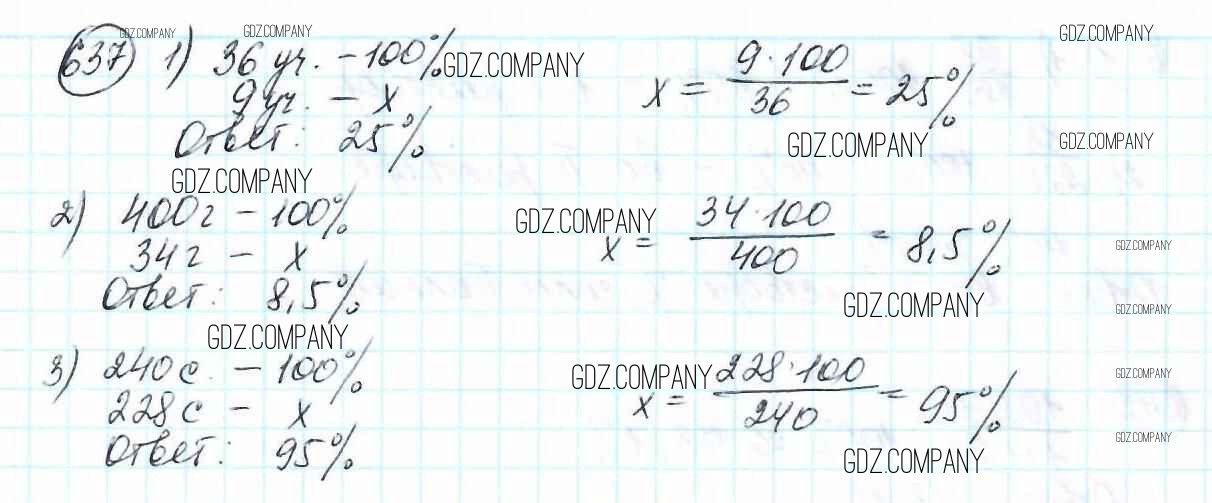 GDZ.COMPANY GDZ.COMPANY GDZ.COMPANY
637 1) 36 уч. - 100% GDZ.COMPANY x = 9·100/36 = 25%
9 уч. - x
Ответ: 25% GDZ.COMPANY GDZ.COMPANY
GDZ.COMPANY
2) 400г - 100% GDZ.COMPANY x = 34·100/400 = 8,5%
34г - x GDZ.COMPANY
Ответ: 8,5% GDZ.COMPANY GDZ.COMPANY
GDZ.COMPANY
3) 240с. - 100% GDZ.COMPANY x = 228·100/240 = 95% GDZ.COMPANY
228с - x
Ответ: 95% GDZ.COMPANY GDZ.COMPANY